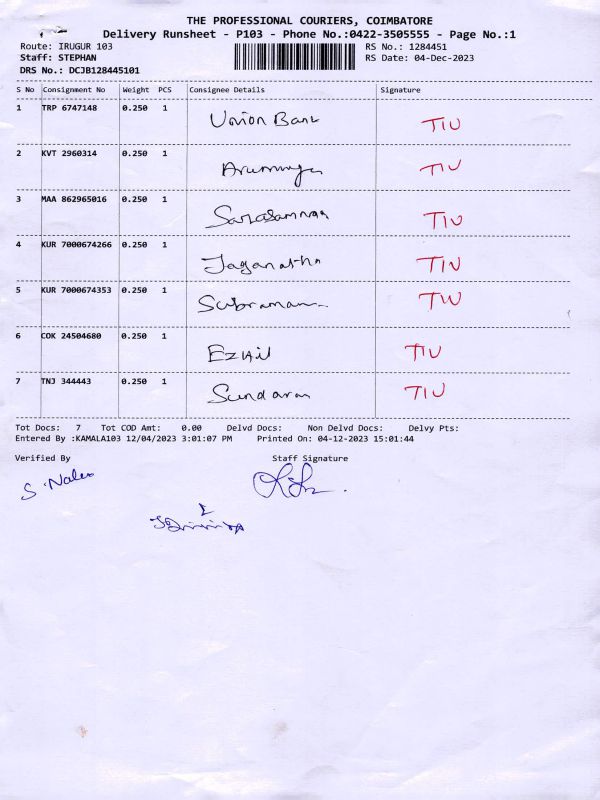 THE PROFESSIONAL COURIERS, COIMBATORE
Delivery Runsheet - P103 - Phone No.:0422-3505555 - Page No.:1
Route: IRUGUR 103 RS No.: 1284451
Staff: STEPHAN RS Date: 04-Dec-2023
DRS No.: DCJB128445101
S No Consignment No Weight PCS Consignee Details Signature
1 TRP 6747148 0.250 1 Union Bank TIU
2 KVT 2960314 0.250 1 TIU
3 MAA 862965016 0.250 1 TIU
4 KUR 7000674266 0.250 1 Jaganatha TIU
5 KUR 7000674353 0.250 1 TIU
6 COK 24504680 0.250 1 Ezhil TIU
7 TNJ 344443 0.250 1 Sundaram TIU
Tot Docs: 7 Tot COD Amt: 0.00 Delvd Docs: Non Delvd Docs: Delvy Pts:
Entered By :KAMALA103 12/04/2023 3:01:07 PM Printed On: 04-12-2023 15:01:44
Verified By Staff Signature